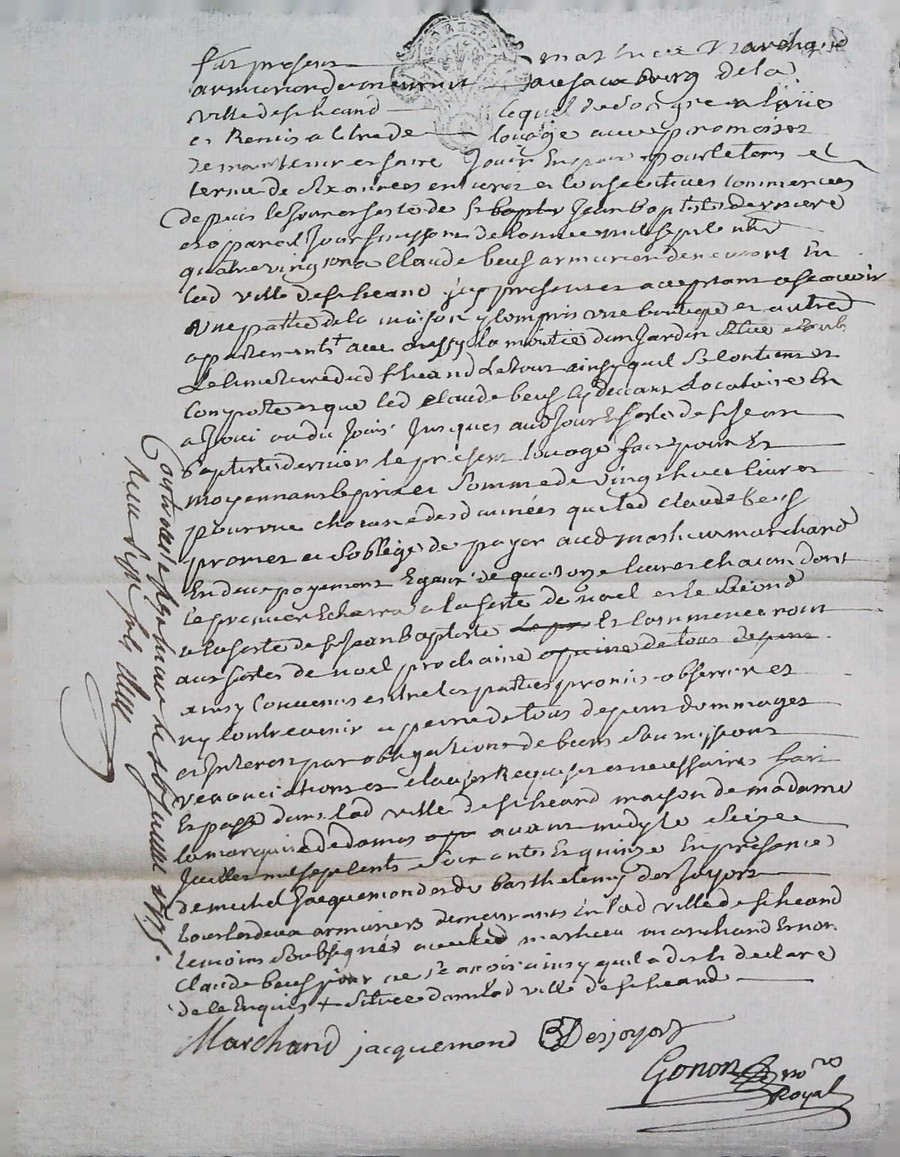 Fut présent mathieu marchand
armurier demeurant au fauxbourg de la
ville de st heand lequel de son gré a loüé
et Remis a titre de louage avec promesse
de maintenir et faire Jouir En paix pour le tems et
terme de six années entieres et consecutives commencées
depuis le Jour et feste de st bapt Jean Baptiste derniere
et a pareil Jour finissant de l'année mil sept cents
quatre vingt un a Claude beuf armurier demeurant En
lad ville de st heand y present et acceptant a scavoir
Une partie de la maison y compris une boutique et autres
appartements avec aussy la moitié d'un Jardin
Le Cimetiere dud st heand Le tout ainsy quil se contient et
Comporte et que led Claude beuf Cy devant Locataire En
a Joui ou du Jouir Jusques aud Jour Et feste de st Jean
baptiste dernier le present louage fait pour Et
moyennant le prix et somme de vingt huit livres
pour une chacune desd années que led Claude beuf
promet et soblige de payer aud mathieu marchand
En deux payements Egaux de quatorze livres chacun dont
le premier Echerra a la feste de noel et le second
a la feste de st Jean Baptiste Et commenceront
aux festes de noel prochaine a peine de tous depens
ainsy Convenus entre les parties promis observer et
ny contrevenir a peine de tous depens dommages
et Interets par obligations de biens soumissions
renonciations et clauses Requises et necessaires fait
Et passé dans lad ville de st heand maison de madame
la marquise de damas avant midy le seize
Juillet mil sept cents soixante Et quinze En presence
de michel Jacquemond et de barthelemy desjoyots
tous les deux armuriers demeurants En lad ville de st heand
temoins soubsignés avec led mathieu marchand Et non
Claude beuf pour ne scavoir ainsy quil a dit et declaré
de ce Enquis + située dans lad ville de st heand
Marchand jacquemond B Desjoyots
Gonon no re
Royal
Controllé a st heand le Juillet 1775.
Reçu sept sols